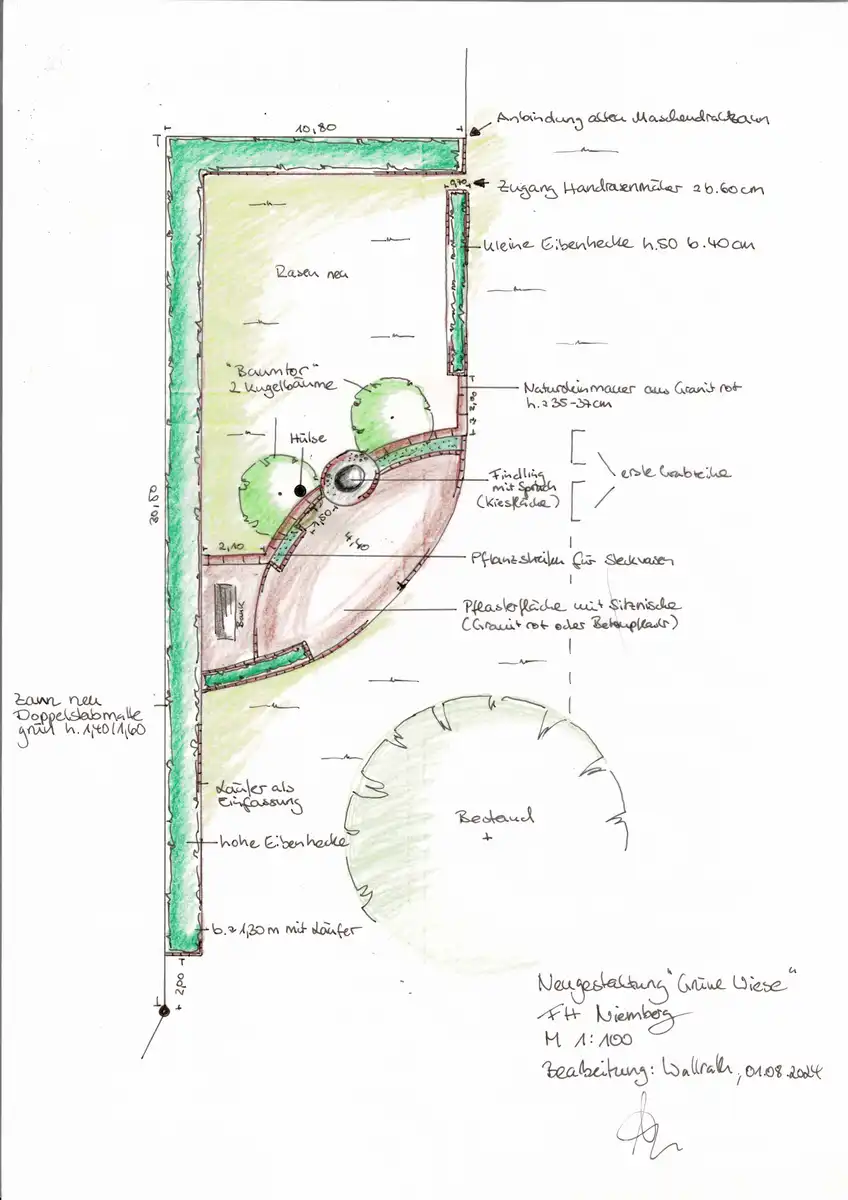 10,80
Anbindung alten Maschendrahtzaun
0,70
Zugang Handrasenmäher ≥ b.60cm
kleine Eibenhecke h.50 b.40cm
Rasen neu
"Baumtor"
2 Kugelbäume
Natursteinmauer aus Granit rot
h. ≥ 35-37cm
2,00
Hülse
Findling
mit Spruch
(Kiesfläche)
erste Grabreihe
30,60
1,50
4,40
2,10
Pflanzstreifen für Steckvasen
Bank
Pflasterfläche mit Sitznische
(Granit rot oder Betonpflaster)
Zaun neu
Doppelstabmatte
grün h. 1,40/1,60
Läufer als
Einfassung
Bestand
hohe Eibenhecke
b. ≥ 1,30 m mit Läufer
2,00
Neugestaltung "Grüne Wiese"
FH Niemberg
M 1:100
Bearbeitung: Wallrath, 01.08.2024